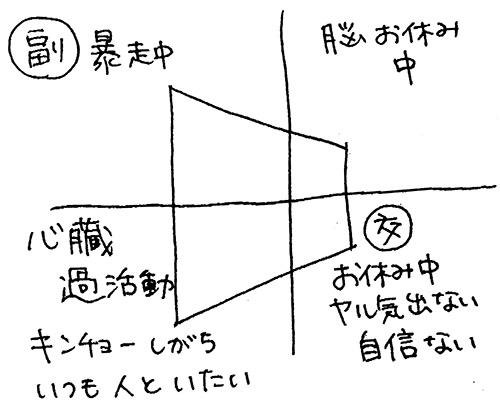 副 暴走中
脳お休み
中
心臓
過活動
キンチョーしがち
いつも人といたい
交
お休み中
ヤル気出ない
自信ない